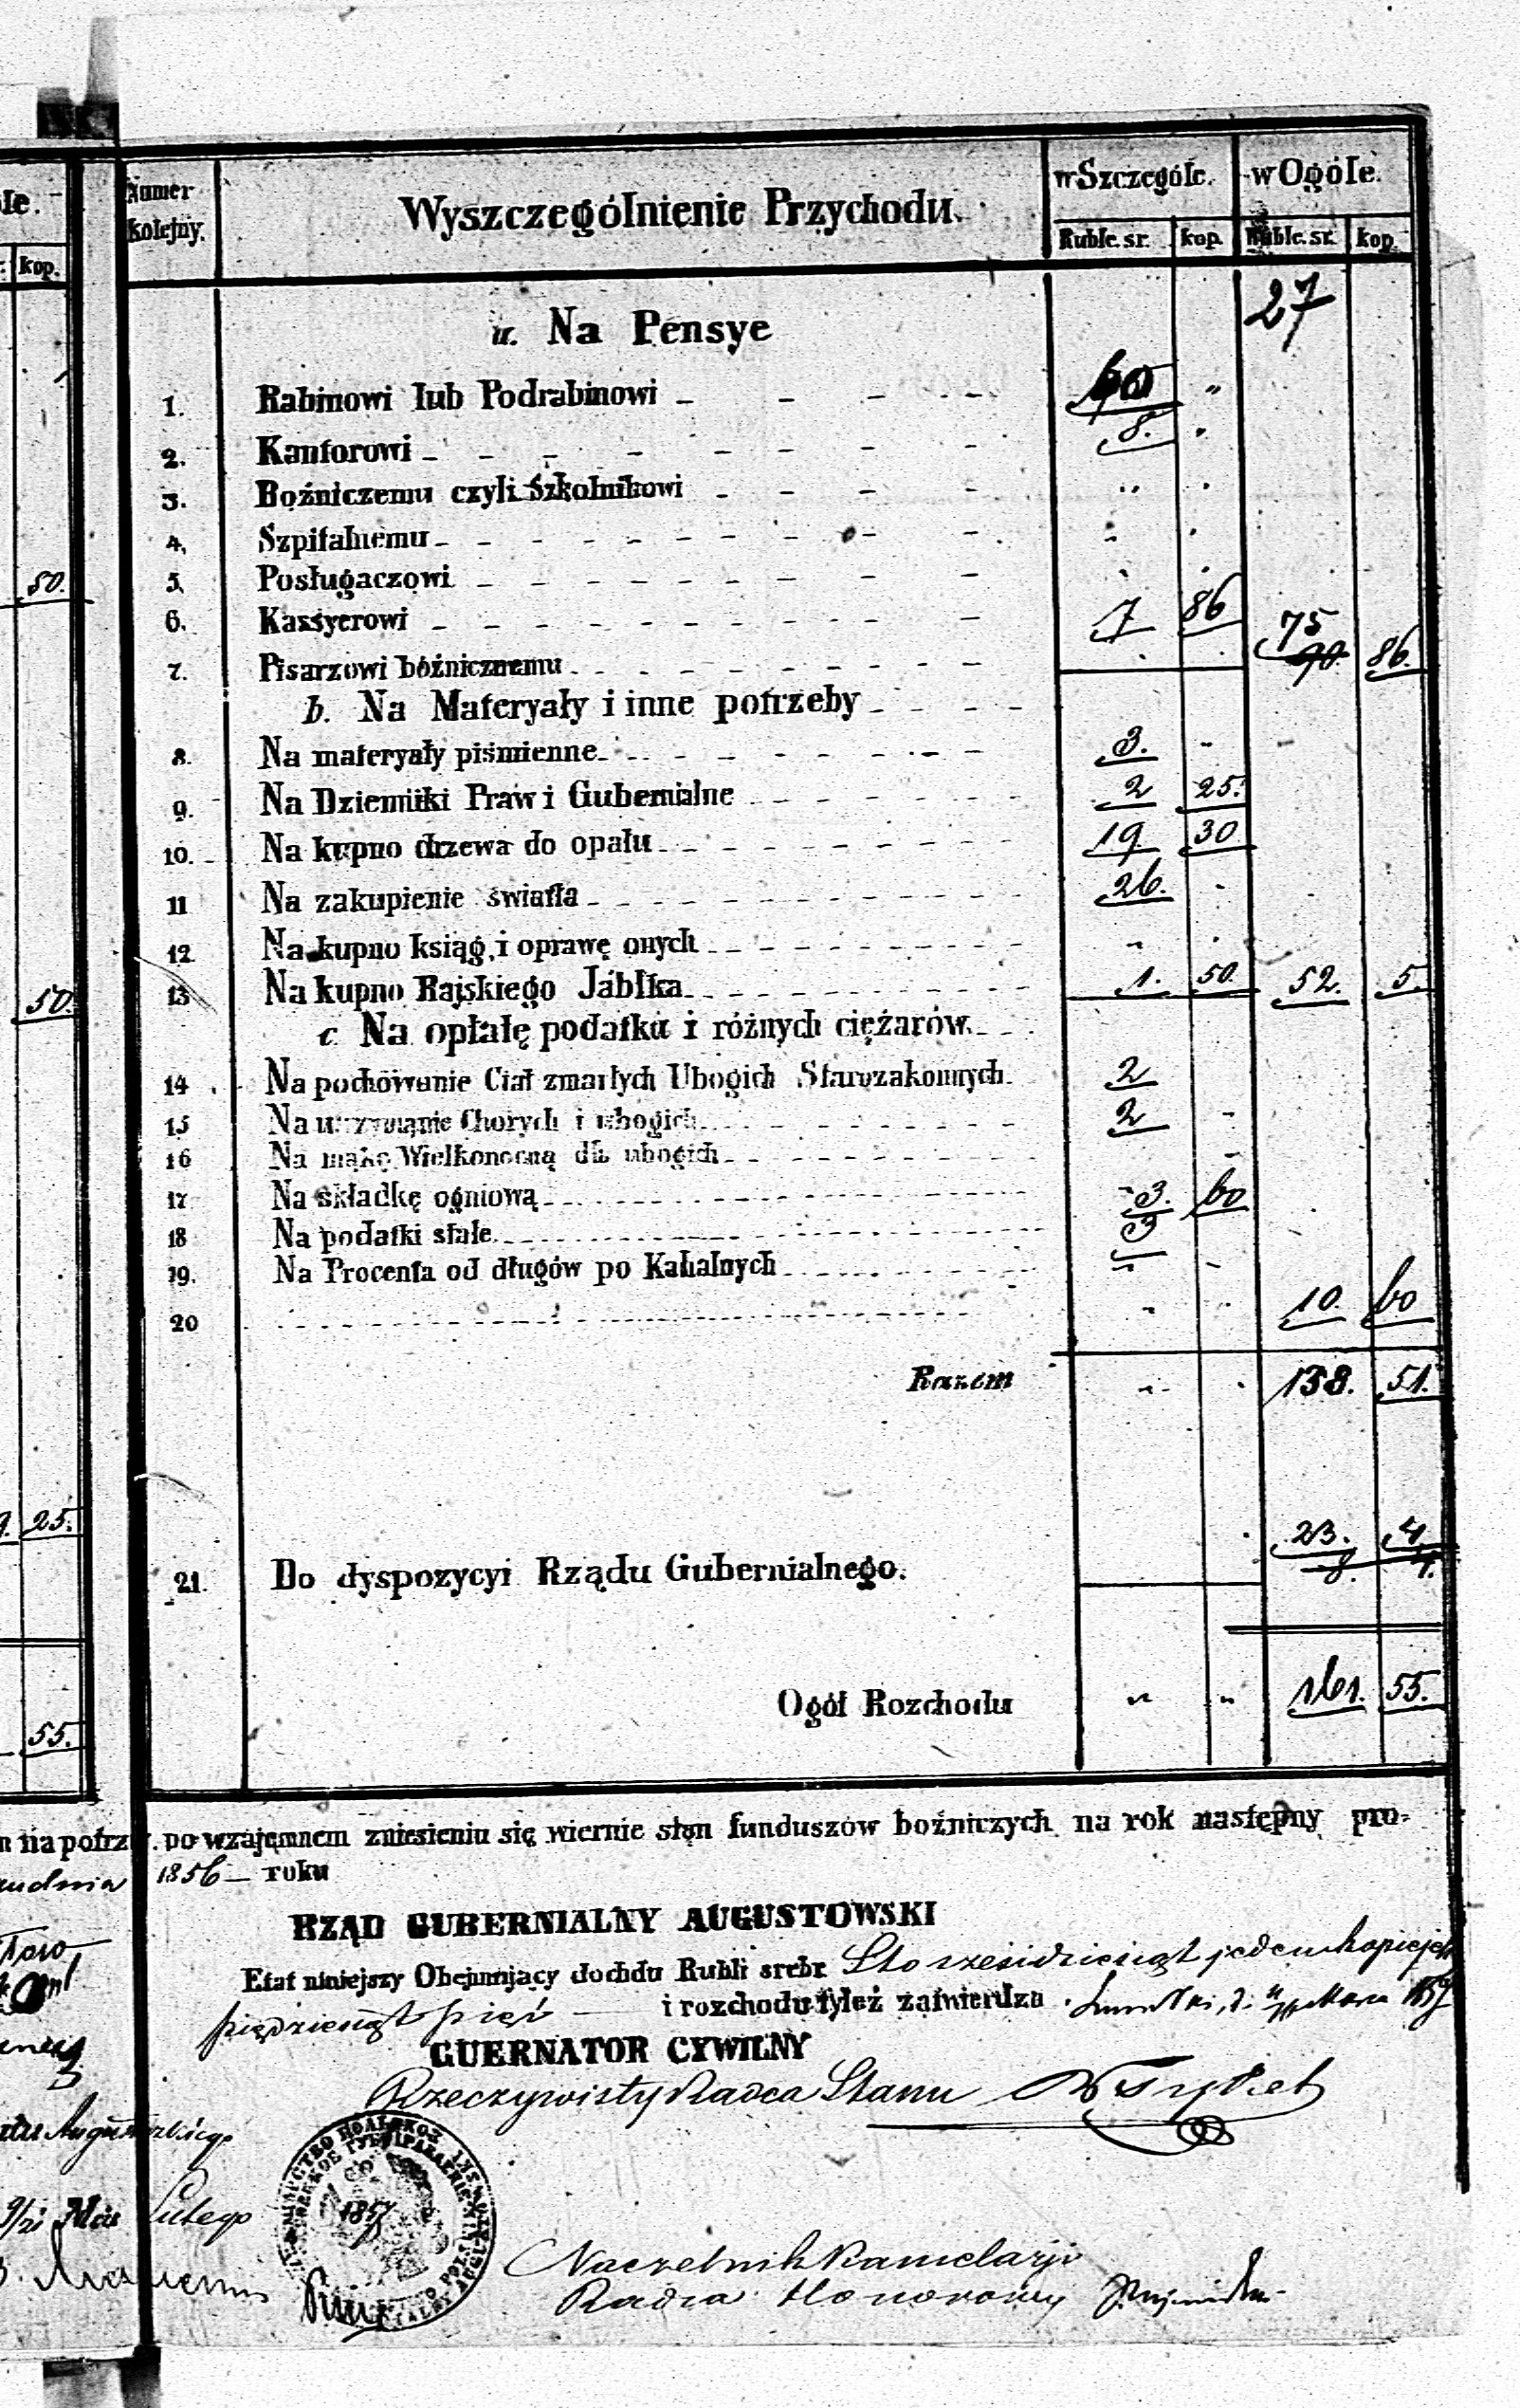 le. Numer kolejny. Wyszczególnienie Przychodu. w Szczególe. w Ogóle.
kop. Ruble. sr. kop. Ruble. sr. kop.
27
a. Na Pensye
1. Rabinowi lub Podrabinowi - - - - 60 "
2. Kantorowi - - - - - - - - 8. "
3. Bożniczemu czyli Szkolnikowi - - - - " "
4. Szpitalnemu - - - - - - - - - " "
50. 5. Posługaczowi - - - - - - - - " "
6. Kassyerowi - - - - - - - - - 7 86 75
7. Pisarzowi bóżnicznemu - - - - - - - " " 90. 86.
b. Na Materyały i inne potrzeby - - - -
8. Na materyały piśmienne - - - - - - - 3. -
9. Na Dzienniki Praw i Gubernialne - - - - - 2 25.
10. Na kupno drzewa do opału - - - - - - - 19 30
11 Na zakupienie światła - - - - - - - - 26. "
12. Na kupno ksiąg, i oprawę onych - - - - - - " "
50. 13 Na kupno Rajskiego Jabłka - - - - - - 1. 50. 52. 5.
c. Na opłatę podatku i różnych ciężarów. - -
14 Na pochówanie Ciał zmarłych Ubogich Starozakonnych. 2
15 Na utrzymanie Chorych i ubogich - - - - - - 2 -
16 Na mąkę Wielkonocną dla ubogich - - - - - - " -
17 Na składkę ogniową - - - - - - - - 3. 60
18 Na podatki stałe - - - - - - - - - 3
19. Na Procenta od długów po Kahalnych - - - - - " -
20 - - - - - - - - - - " " 10. 60
Razem " " 138. 51.
9. 25. 23. 4
21. Do dyspozycyi Rządu Gubernialnego. 8. 4.
55. Ogół Rozchodu " " 161. 55.
na potrz. po wzajemnem zniesieniu się wiernie stan funduszów bożniczych na rok następny pro-
1856 - roku
RZĄD GUBERNIALNY AUGUSTOWSKI
Etat niniejszy Obejmujący dochdu Rubli srebr. Sto sześćdziesiąt jeden kopiejek
pięćdziesiąt pięć i rozchodu tyleż zatwierdza. Suwałki, d. Marca 1857
GUERNATOR CYWILNY
Rzeczywisty Radca Stanu
Augustowskiego
Lutego
1857
Naczelnik Kancelaryi
Radca Honorowy